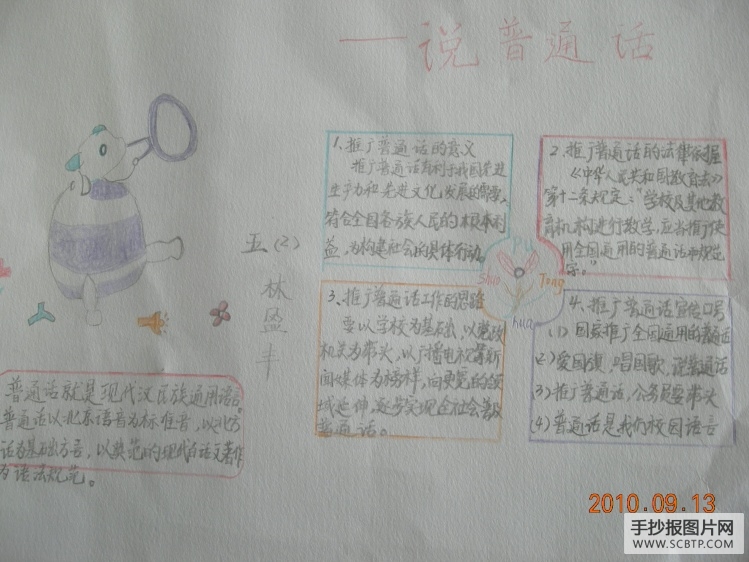 ——说普通话
1、推广普通话的意义
推广普通话有利于我国先进
生产力和先进文化发展的需要,
符合全国各族人民的根本利
益,为构建社会的具体行动。
2、推广普通话的法律依据
《中华人民共和国教育法》
第十二条规定:“学校及其他教
育机构进行教学,应当推广使
用全国通用的普通话和规范
字。”
Pu
Shuo
Tong
hua
五(2)
林盈丰
3、推广普通话工作的思路
要以学校为基础,以党政
机关为带头,以广播电视等新
闻媒体为榜样,向更宽的领
域延伸,逐步实现全社会普及
普通话。
4、推广普通话宣传口号
(1)国家推广全国通用的普通话
(2)爱国旗,唱国歌,说普通话
(3)推广普通话,公务员要带头
(4)普通话是我们校园语言
普通话就是现代汉民族通用语言。
普通话以北京语音为标准音,以北方
话为基础方言,以典范的现代白话文著作
为语法规范。
2010.09.13
手抄报图片网
WWW.SCBTP.COM